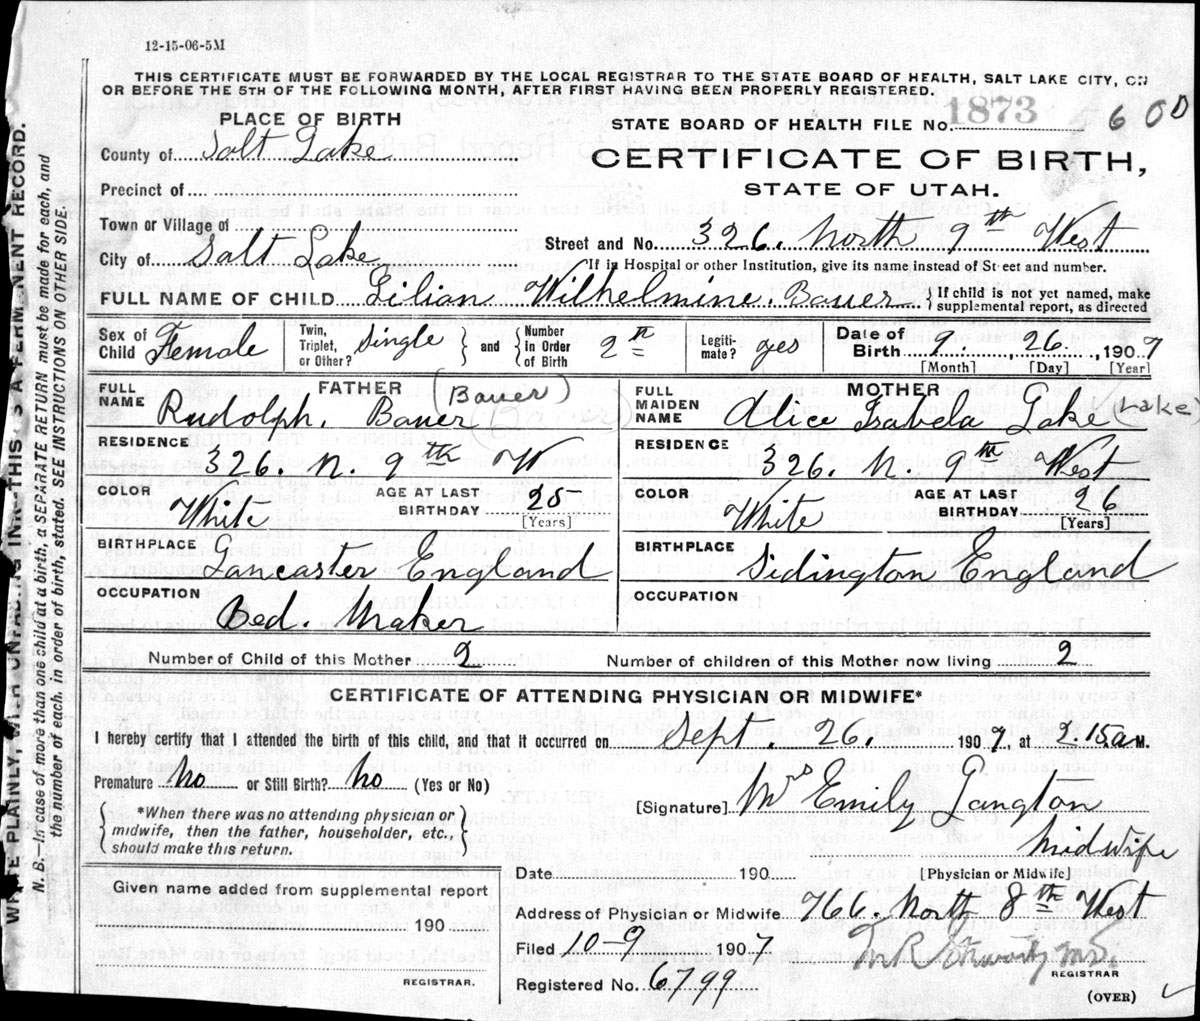 12-15-06-5M
THIS CERTIFICATE MUST BE FORWARDED BY THE LOCAL REGISTRAR TO THE STATE BOARD OF HEALTH, SALT LAKE CITY, ON
OR BEFORE THE 5TH OF THE FOLLOWING MONTH, AFTER FIRST HAVING BEEN PROPERLY REGISTERED.
PLACE OF BIRTH
STATE BOARD OF HEALTH FILE NO. 1873 600
County of Salt Lake
CERTIFICATE OF BIRTH,
STATE OF UTAH.
Precinct of
Town or Village of
Street and No. 326. North 9th West
City of Salt Lake
If in Hospital or other Institution, give its name instead of Street and number.
FULL NAME OF CHILD Lilian Wilhelmine. Bauer { If child is not yet named, make
supplemental report, as directed
Sex of Child Female
Twin, Triplet, or Other? Single } and { Number in Order of Birth 2th
Legitimate? yes
Date of Birth 9. , 26 , 1907
[Month] [Day] [Year]
FULL NAME FATHER (Bauer)
Rudolph. Bauer
FULL MAIDEN NAME MOTHER
Alice Isabela Lake (Lake)
RESIDENCE 326. N. 9th W
RESIDENCE 326. N. 9th West
COLOR White AGE AT LAST BIRTHDAY 25 [Years]
COLOR White AGE AT LAST BIRTHDAY 26 [Years]
BIRTHPLACE Lancaster England
BIRTHPLACE Sidington England
OCCUPATION Bed. Maker
OCCUPATION
Number of Child of this Mother 2 Number of children of this Mother now living 2
CERTIFICATE OF ATTENDING PHYSICIAN OR MIDWIFE*
I hereby certify that I attended the birth of this child, and that it occurred on Sept. 26. 1907, at 2.15 a M.
Premature No or Still Birth? No (Yes or No)
[Signature] Mrs Emily Langton
Midwife
[Physician or Midwife]
{ *When there was no attending physician or
midwife, then the father, householder, etc.,
should make this return. }
Date 190
Given name added from supplemental report
190
REGISTRAR.
Address of Physician or Midwife 766. North 8th West
Filed 10-9 1907
REGISTRAR
Registered No. 6799
(OVER)
WRITE PLAINLY WITH UNFADING INK—THIS IS A PERMANENT RECORD.
N. B.—In case of more than one child at a birth, a SEPARATE RETURN must be made for each, and
the number of each, in order of birth, stated. SEE INSTRUCTIONS ON OTHER SIDE.